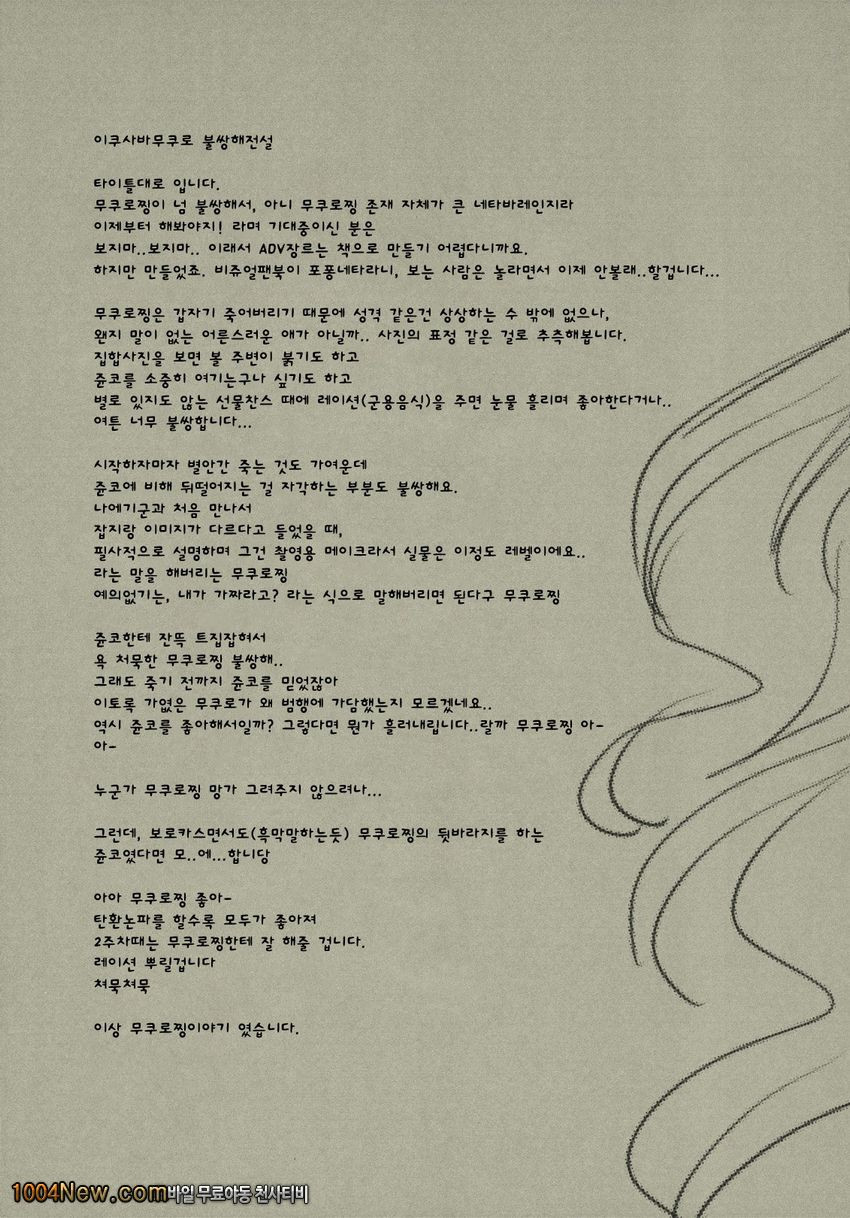 이쿠사바무쿠로 불쌍해전설
타이틀대로 입니다.
무쿠로찡이 넘 불쌍해서, 아니 무쿠로찡 존재 자체가 큰 네타바레인지라
이제부터 해봐야지! 라며 기대중이신 분은
보지마..보지마.. 이래서 ADV장르는 책으로 만들기 어렵다니까요.
하지만 만들었죠. 비쥬얼팬북이 포풍네타라니, 보는 사람은 놀라면서 이제 안볼래..할겁니다...
무쿠로찡은 갑자기 죽어버리기 때문에 성격 같은건 상상하는 수 밖에 없으나,
왠지 말이 없는 어른스러운 애가 아닐까.. 사진의 표정 같은 걸로 추측해봅니다.
집합사진을 보면 볼 주변이 붉기도 하고
쥰코를 소중히 여기는구나 싶기도 하고
별로 있지도 않는 선물찬스 때에 레이션(군용음식)을 주면 눈물 흘리며 좋아한다거나..
여튼 너무 불쌍합니다...
시작하자마자 별안간 죽는 것도 가여운데
쥰코에 비해 뒤떨어지는 걸 자각하는 부분도 불쌍해요.
나에기군과 처음 만나서
잡지랑 이미지가 다르다고 들었을 때,
필사적으로 설명하며 그건 촬영용 메이크라서 실물은 이정도 레벨이에요..
라는 말을 해버리는 무쿠로찡
예의없기는, 내가 가짜라고? 라는 식으로 말해버리면 된다구 무쿠로찡
쥰코한테 잔뜩 트집잡혀서
욕 처묵한 무쿠로찡 불쌍해..
그래도 죽기 전까지 쥰코를 믿었잖아
이토록 가엾은 무쿠로가 왜 범행에 가담했는지 모르겠네요..
역시 쥰코를 좋아해서일까? 그렇다면 뭔가 흘러내립니다..랄까 무쿠로찡 아-
아-
누군가 무쿠로찡 망가 그려주지 않으려나...
그런데, 보로카스면서도(흑막말하는듯) 무쿠로찡의 뒷바라지를 하는
쥰코였다면 모..에...합니당
아아 무쿠로찡 좋아-
탄환논파를 할수록 모두가 좋아져
2주차때는 무쿠로찡한테 잘 해줄 겁니다.
레이션 뿌릴겁니다
쳐묵쳐묵
이상 무쿠로찡이야기 였습니다.
1004New.com바일 무료야동 천사티비